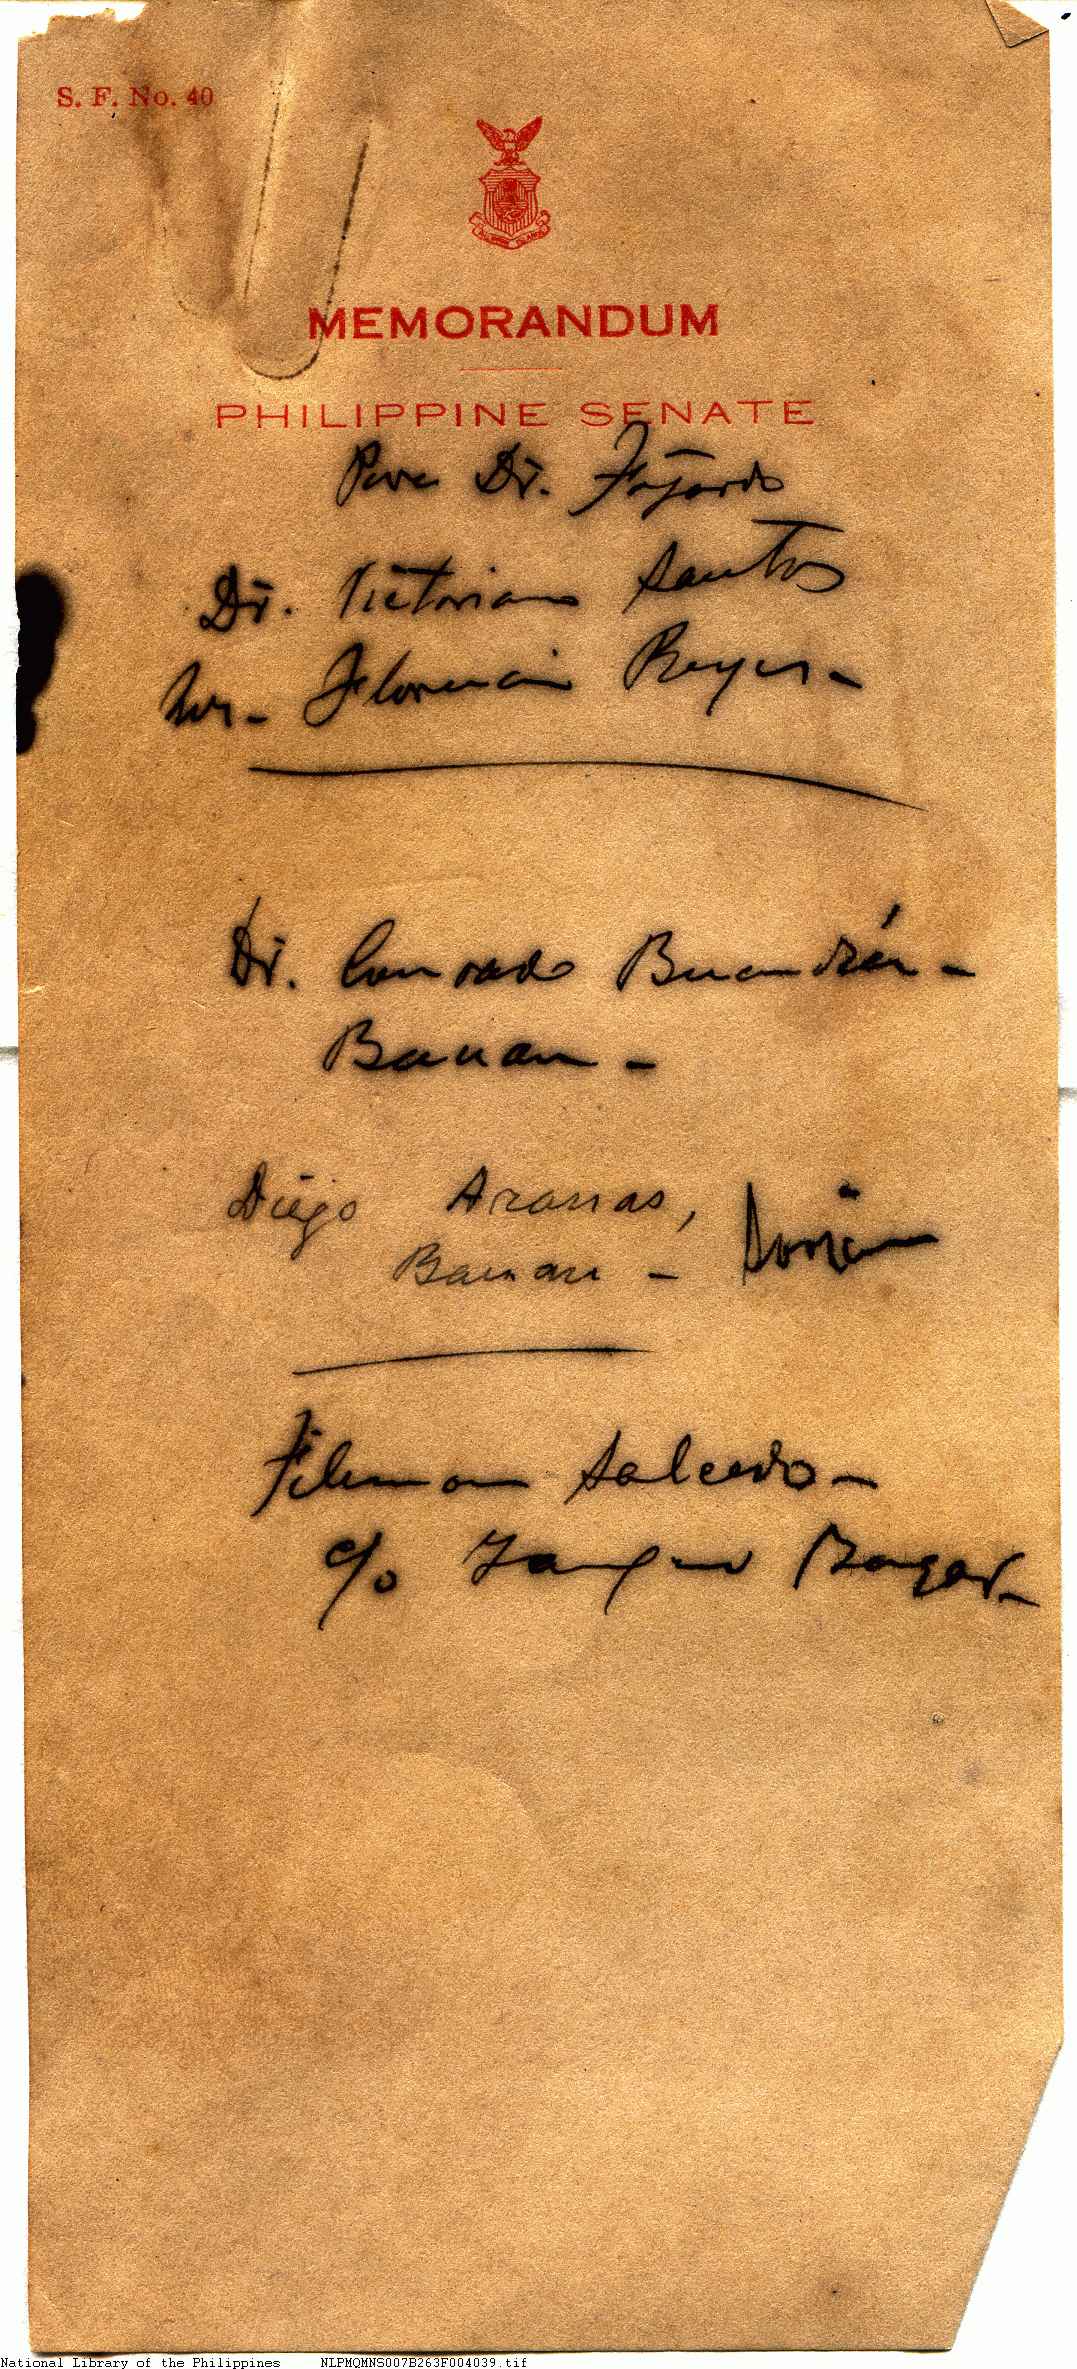 S. F. No. 40
MEMORANDUM
PHILIPPINE SENATE
Para Dr. Fajardo
Dr. Victoriano Santos
Mr. Florencio Reyes -
Dr. Conrado
Bauan -
Diego Aranas,
Bauan -
Filemon Salcedo -
c/o
National Library of the Philippines NLPMQMNS007B263F004039.tif